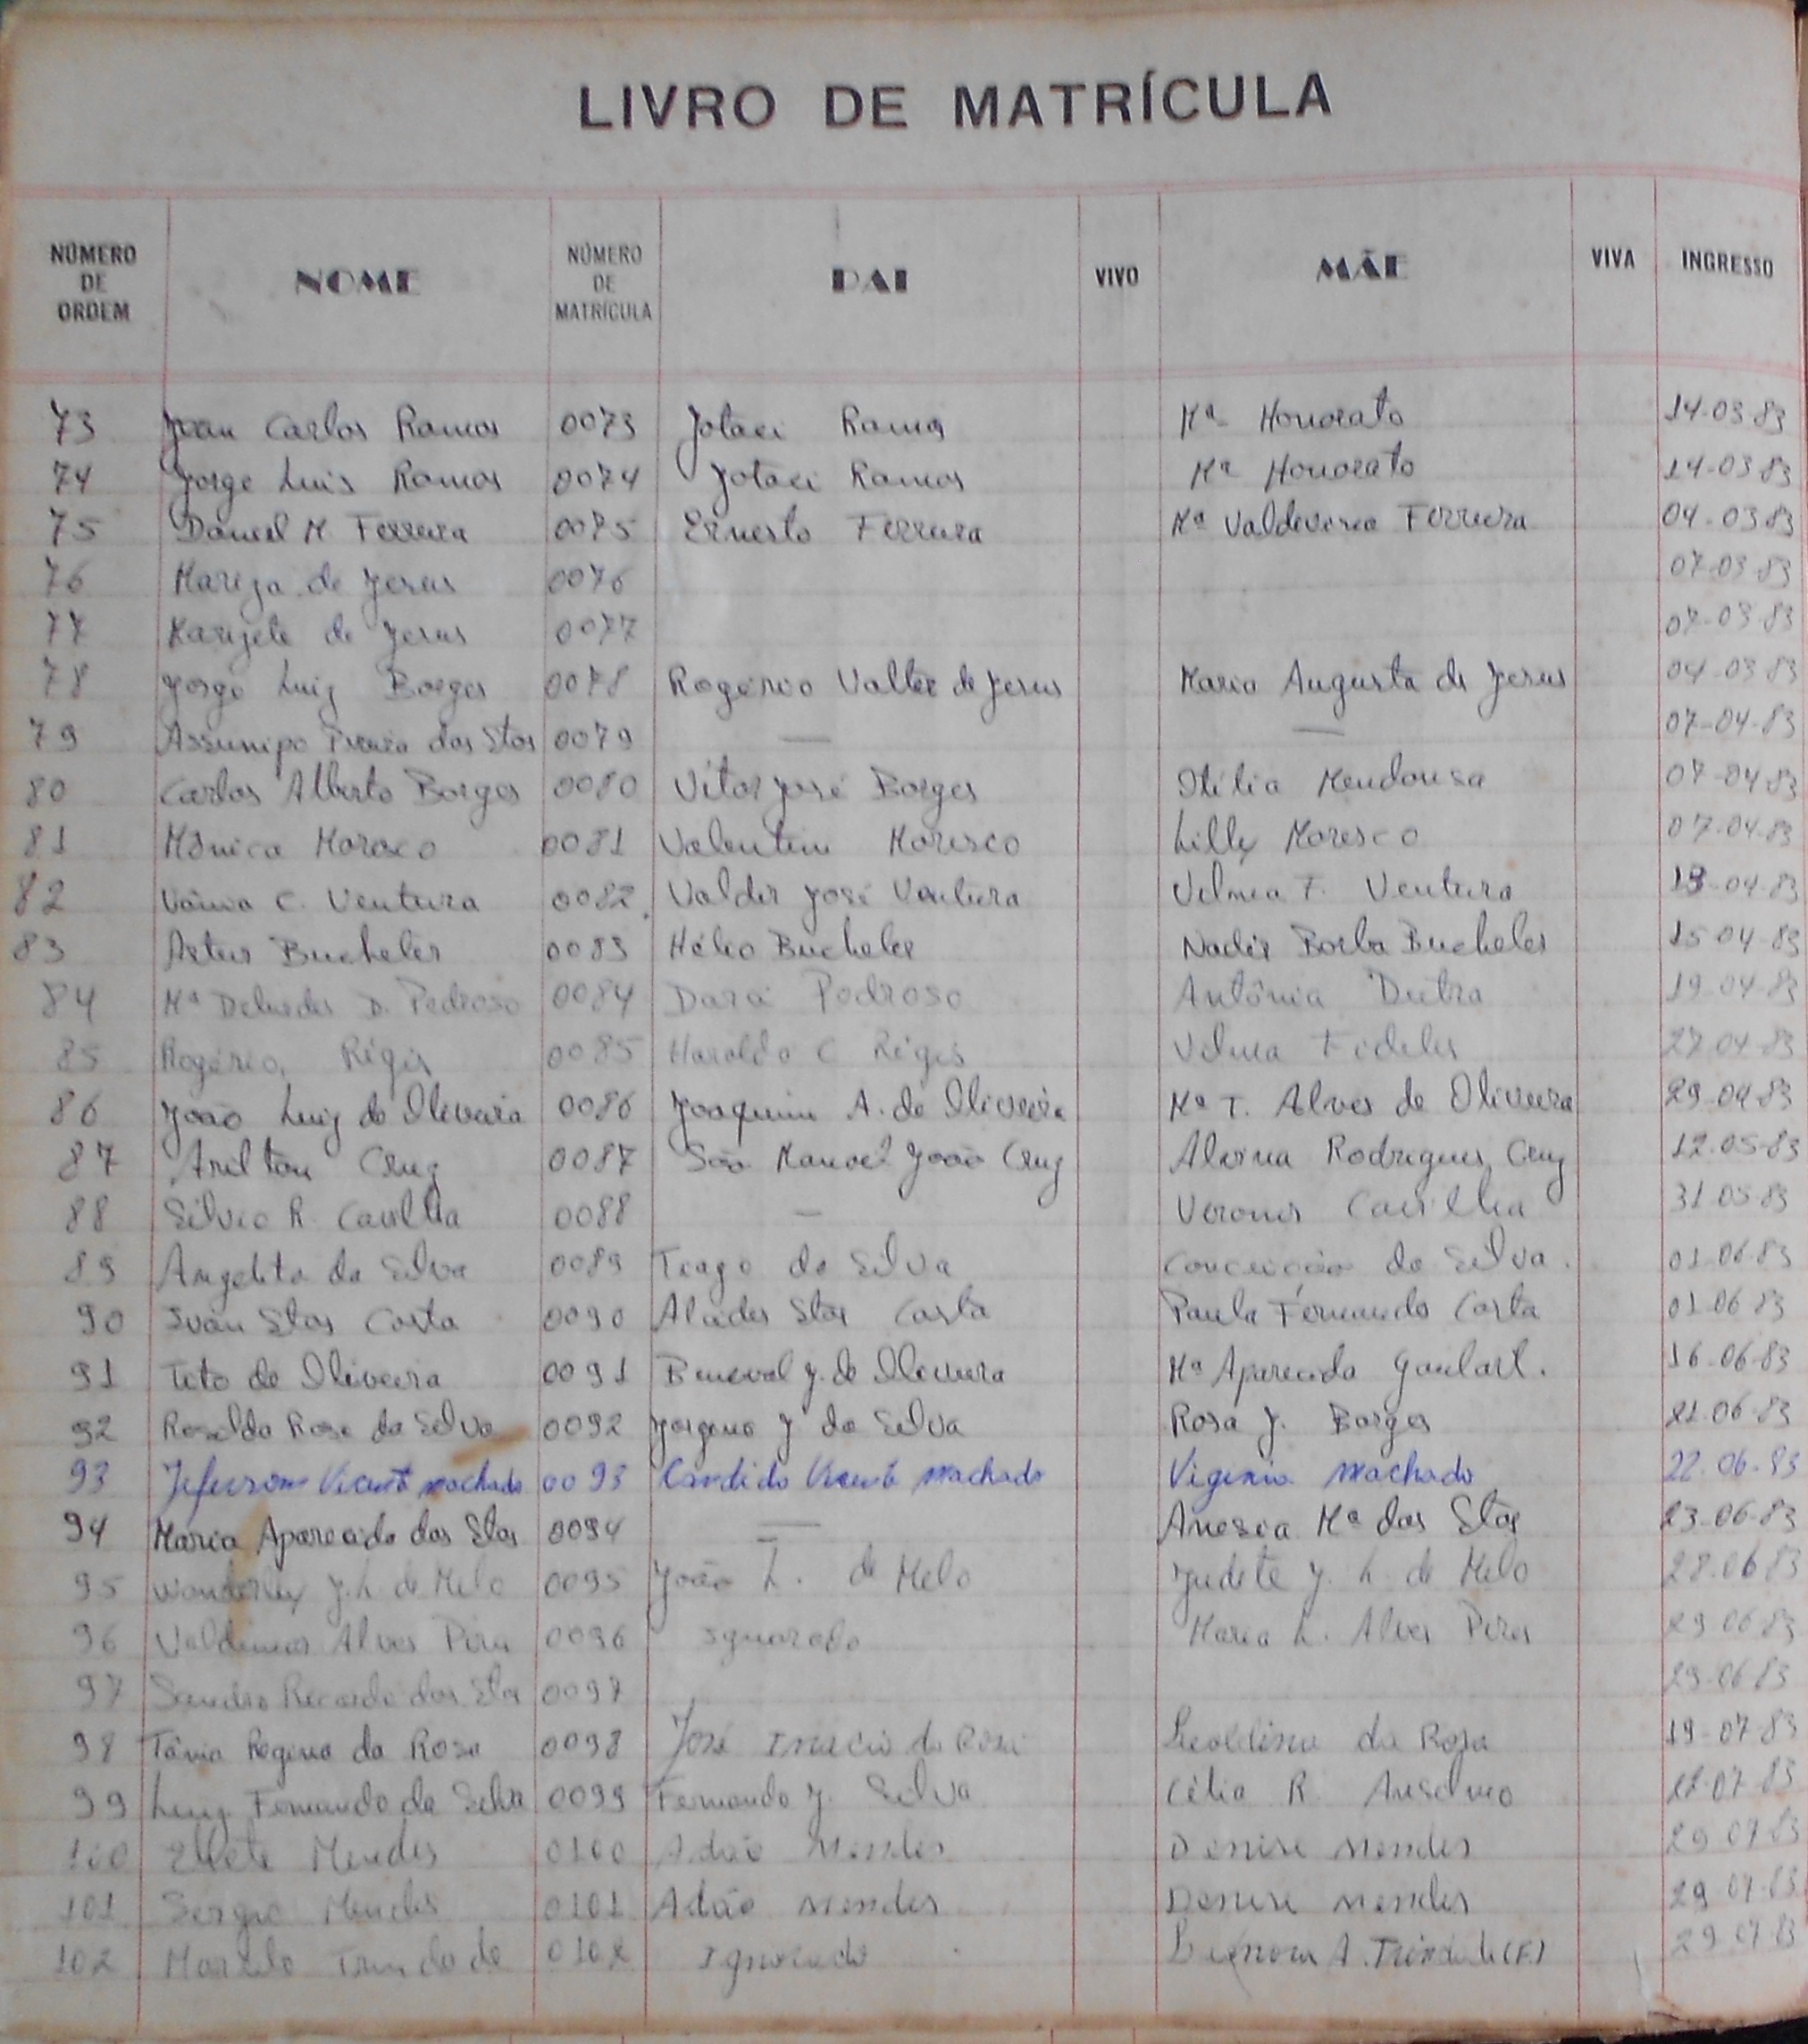 LIVRO DE MATRÍCULA
NÚMERO DE ORDEM NOME NÚMERO DE MATRÍCULA PAI VIVO MÃE VIVA INGRESSO
73 Juan Carlos Ramos 0073 Jotaci Ramos Mª Honorato 14-03-83
74 Jorge Luis Ramos 0074 Jotaci Ramos Mª Honorato 14-03-83
75 Daniel M. Ferreira 0075 Ernesto Ferreira Mª Ferreira 04-03-83
76 Mariza de Jesus 0076 07-03-83
77 Marizete de Jesus 0077 07-03-83
78 Jorge Luiz Borges 0078 Rogério Valter de Jesus Maria Augusta de Jesus 04-03-83
79 dos Stos 0079 — — 07-04-83
80 Carlos Alberto Borges 0080 Vitor José Borges Mendousa 07-04-83
81 Mônica Moresco 0081 Valentim Moresco Lilly Moresco 07-04-83
82 Vânia C. Ventura 0082 Valdir José Ventura Velmea T. Ventura -04-83
83 Artur Bucheler 0083 Hélio Bucheler Nadir Borba Bucheler 15-04-83
84 Mª D. Pedroso 0084 Pedroso Antônia Dutra 19-04-83
85 Rogério Régis 0085 Haroldo C Régis Velma Fideles 27-04-83
86 João Luiz de Oliveira 0086 Joaquim A. de Oliveira Mª T. Alves de Oliveira 29-04-83
87 Arilton Cruz 0087 Manoel João Cruz Rodrigues Cruz 12-05-83
88 Silvio R. Cavilha 0088 — Cavilha 31-05-83
89 Angelita da Silva 0089 Tiago da Silva Conceição da Silva. 01-06-83
90 Ivan Stos Costa 0090 Stos Costa Paula Costa 01-06-83
91 Tito de Oliveira 0091 J. de Oliveira Mª Aparecida Goulart. 16-06-83
92 Rose da Silva 0092 J da Silva Rosa J. Borges 21-06-83
93 Jeferson Vicente Machado 0093 Candido Vicente Machado Viginia Machado 22-06-83
94 Maria Aparecida dos Stos 0094 — Anesia Mª dos Stos 23-06-83
95 Wanderley J. L. de Melo 0095 João L. de Melo Judite J. L. de Melo 28-06-83
96 Valdemar Alves Pires 0096 Ignorado Maria L. Alves Pires 29-06-83
97 Sandro Ricardo dos Stos 0097 29-06-83
98 Tânia Regina da Rosa 0098 José Inacio da Rosa da Rosa 19-07-83
99 Luiz Fernando da Silva 0099 Fernando J. Silva Célia R. Anselmo -07-83
100 Mendes 0100 Adão Mendes Denise Mendes 29-07-83
101 Sergio Mendes 0101 Adão Mendes Denise Mendes 29-07-83
102 Trindade 0102 Ignorado A. Trindade (F.) 29-07-83